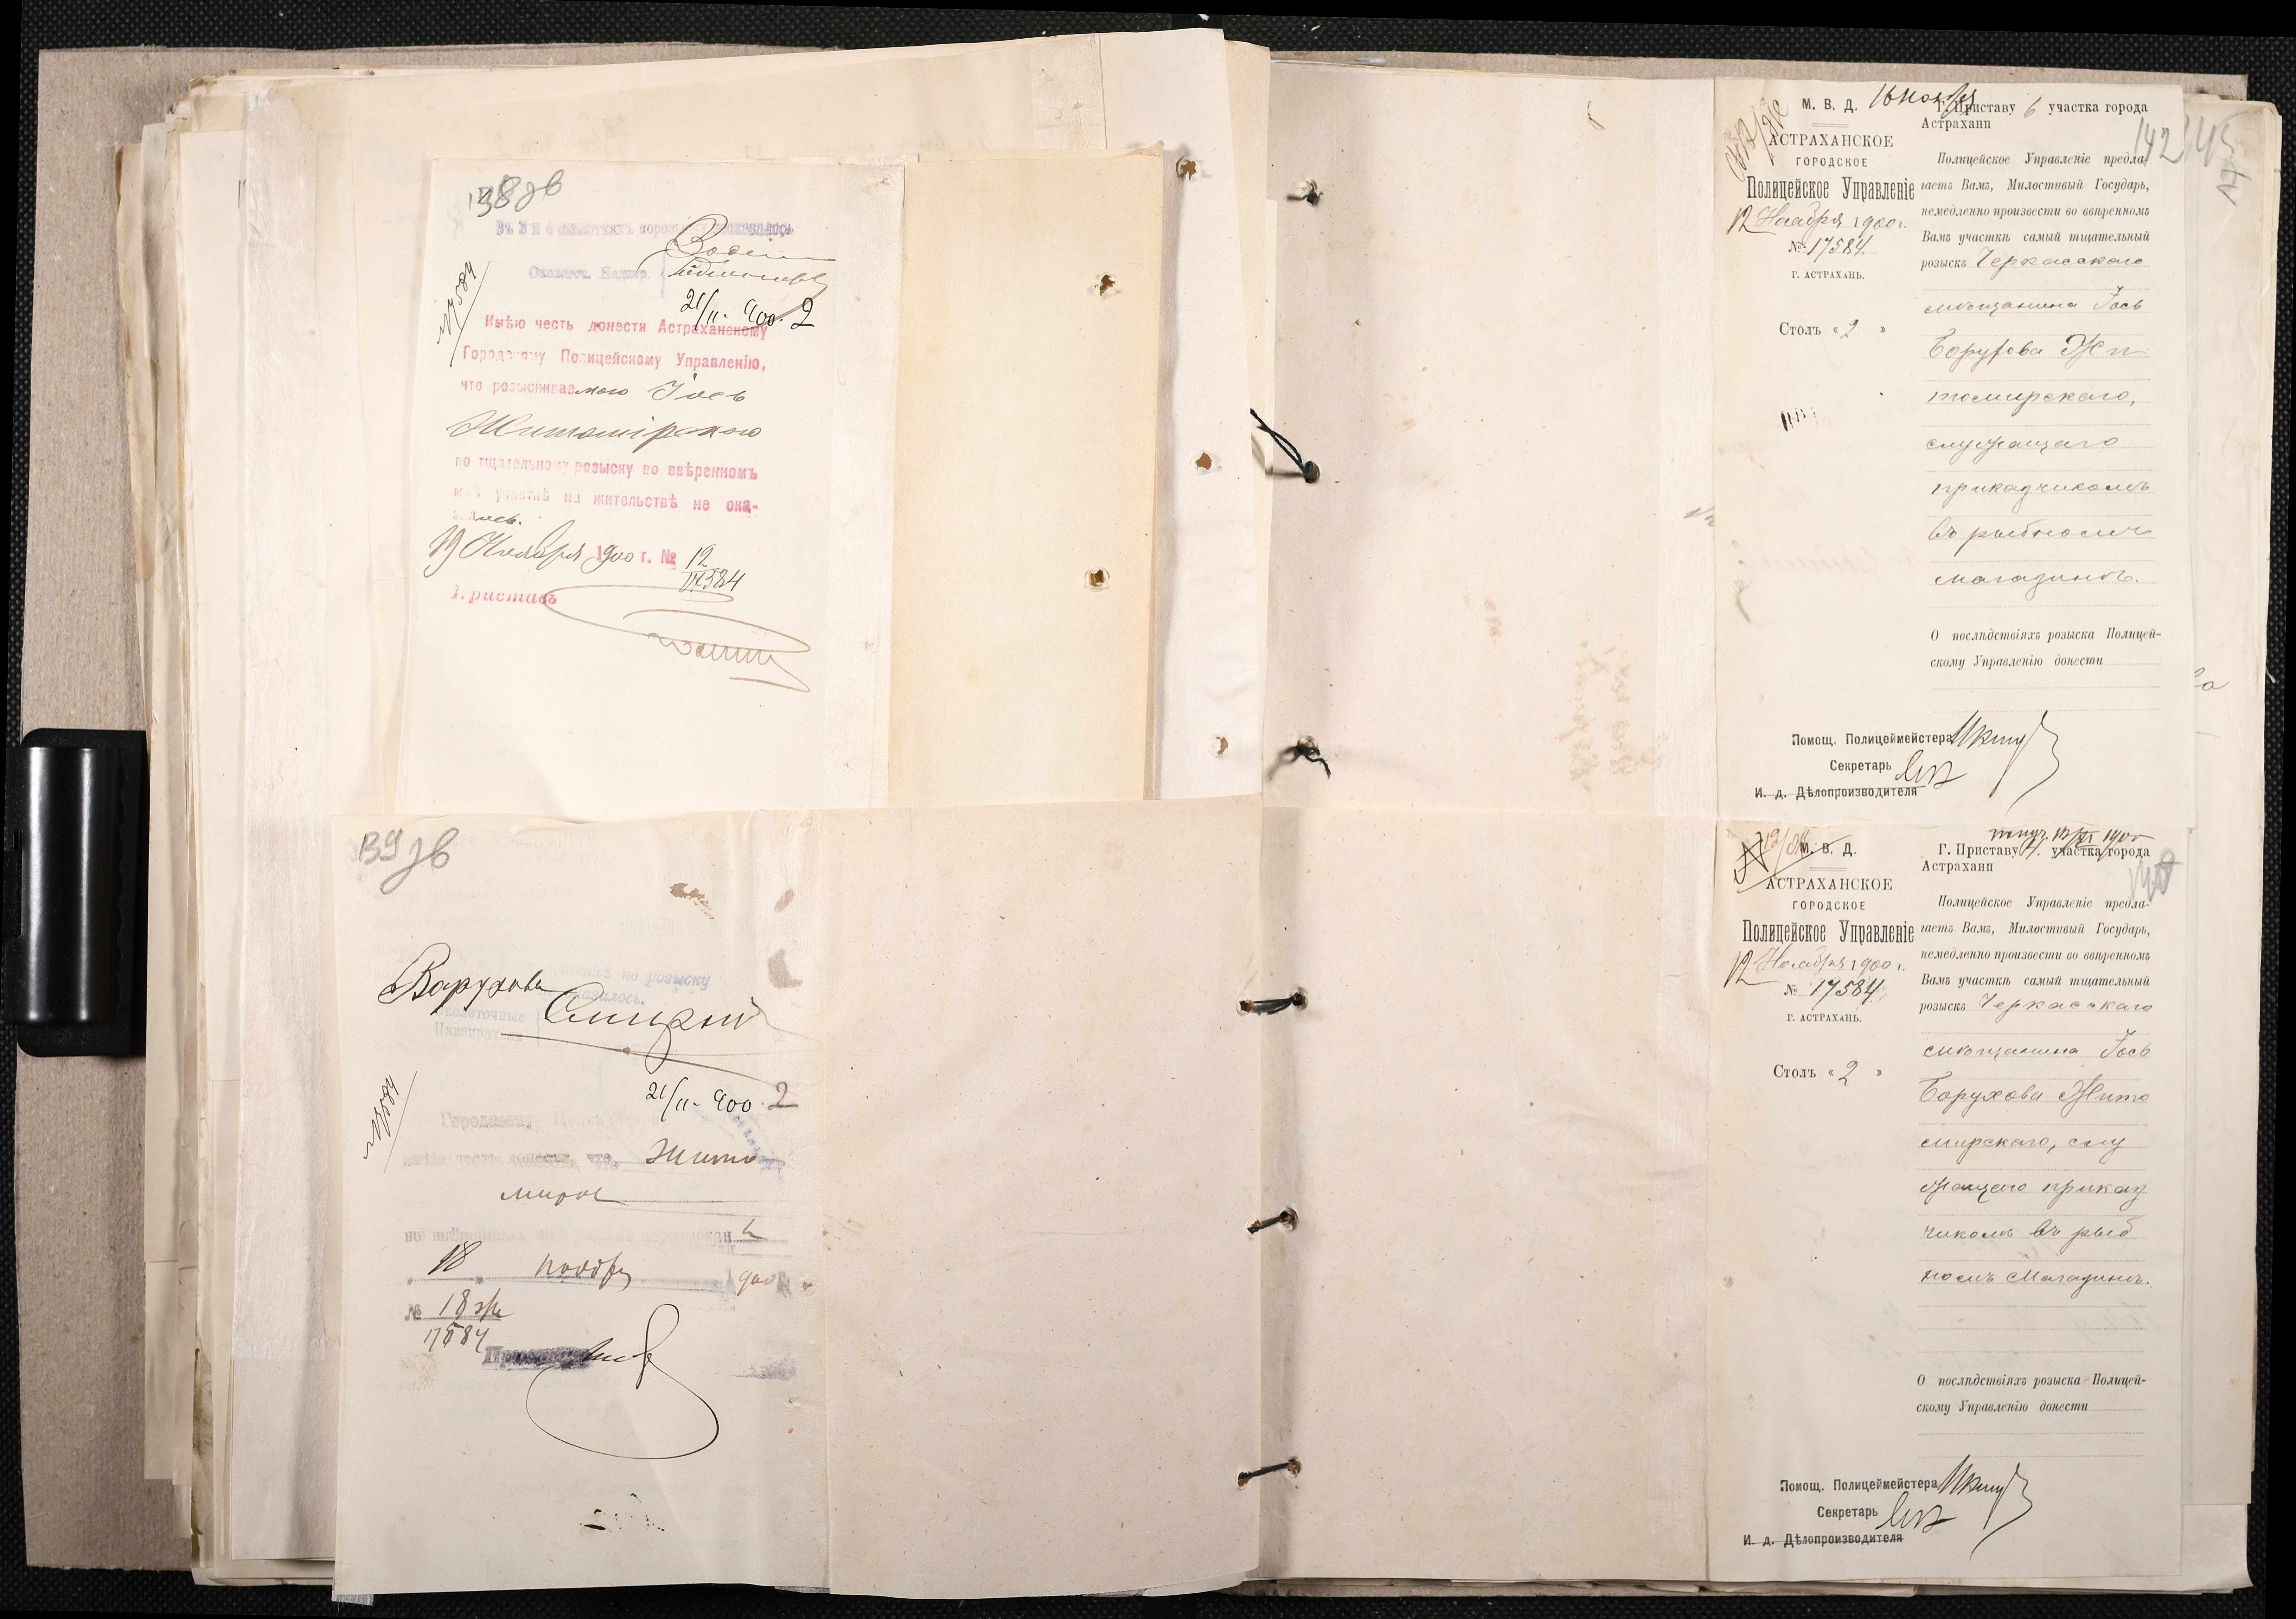 138 об
Въ 3 и 4 околоткахъ
Околоточ. Надзир.
17584
21/11. 900. 2
Имѣю честь донести Астраханскому
Городскому Полицейскому Управленію,
что розыскиваемаго Іось
Житомірскаго
по тщательному розыску во ввѣренномъ
мнѣ участкѣ на жительствѣ не ока-
залось.
19 Ноября 1900 г. № 12
17584
Приставъ
139 об
по розыску
казалось.
Варухова
Околоточные
Надзиратели
17584
21/11. 900. 2
Городскому
имѣю честь донести, что Жито
мирск
18 ноября 900
№ 18
17584
Приставъ
16 ноября
М. В. Д.
АСТРАХАНСКОЕ
ГОРОДСКОЕ
Полицейское Управленіе
12 Ноября 1900 г.
№ 17584.
Г. АСТРАХАНЬ.
Столъ «2»
142
145
Г. Приставу 6 участка города
Астрахани
Полицейское Управленіе предла-
гаетъ Вамъ, Милостивый Государь,
немедленно произвести во ввѣренномъ
Вамъ участкѣ самый тщательный
розыскъ Черкасскаго
мѣщанина Іось
Борухова Жи
томирскаго,
служащаго
прикащикомъ
въ рыбномъ
магазинѣ.
О послѣдствіяхъ розыска Полицей-
скому Управленію донести
Помощ. Полицеймейстера
Секретарь
И. д. Дѣлопроизводителя
М. В. Д.
АСТРАХАНСКОЕ
ГОРОДСКОЕ
Полицейское Управленіе
12 Ноября 1900 г.
№ 17584.
Г. АСТРАХАНЬ.
Столъ «2»
Г. Приставу 4. участка города
Астрахани
Полицейское Управленіе предла-
гаетъ Вамъ, Милостивый Государь,
немедленно произвести во ввѣренномъ
Вамъ участкѣ самый тщательный
розыскъ Черкасскаго
мѣщанина Іось
Борухова Жито
мирскаго, слу
жащаго приказ
чикомъ въ рыб
номъ Магазинѣ.
О послѣдствіяхъ розыска Полицей-
скому Управленію донести
Помощ. Полицеймейстера
Секретарь
И. д. Дѣлопроизводителя